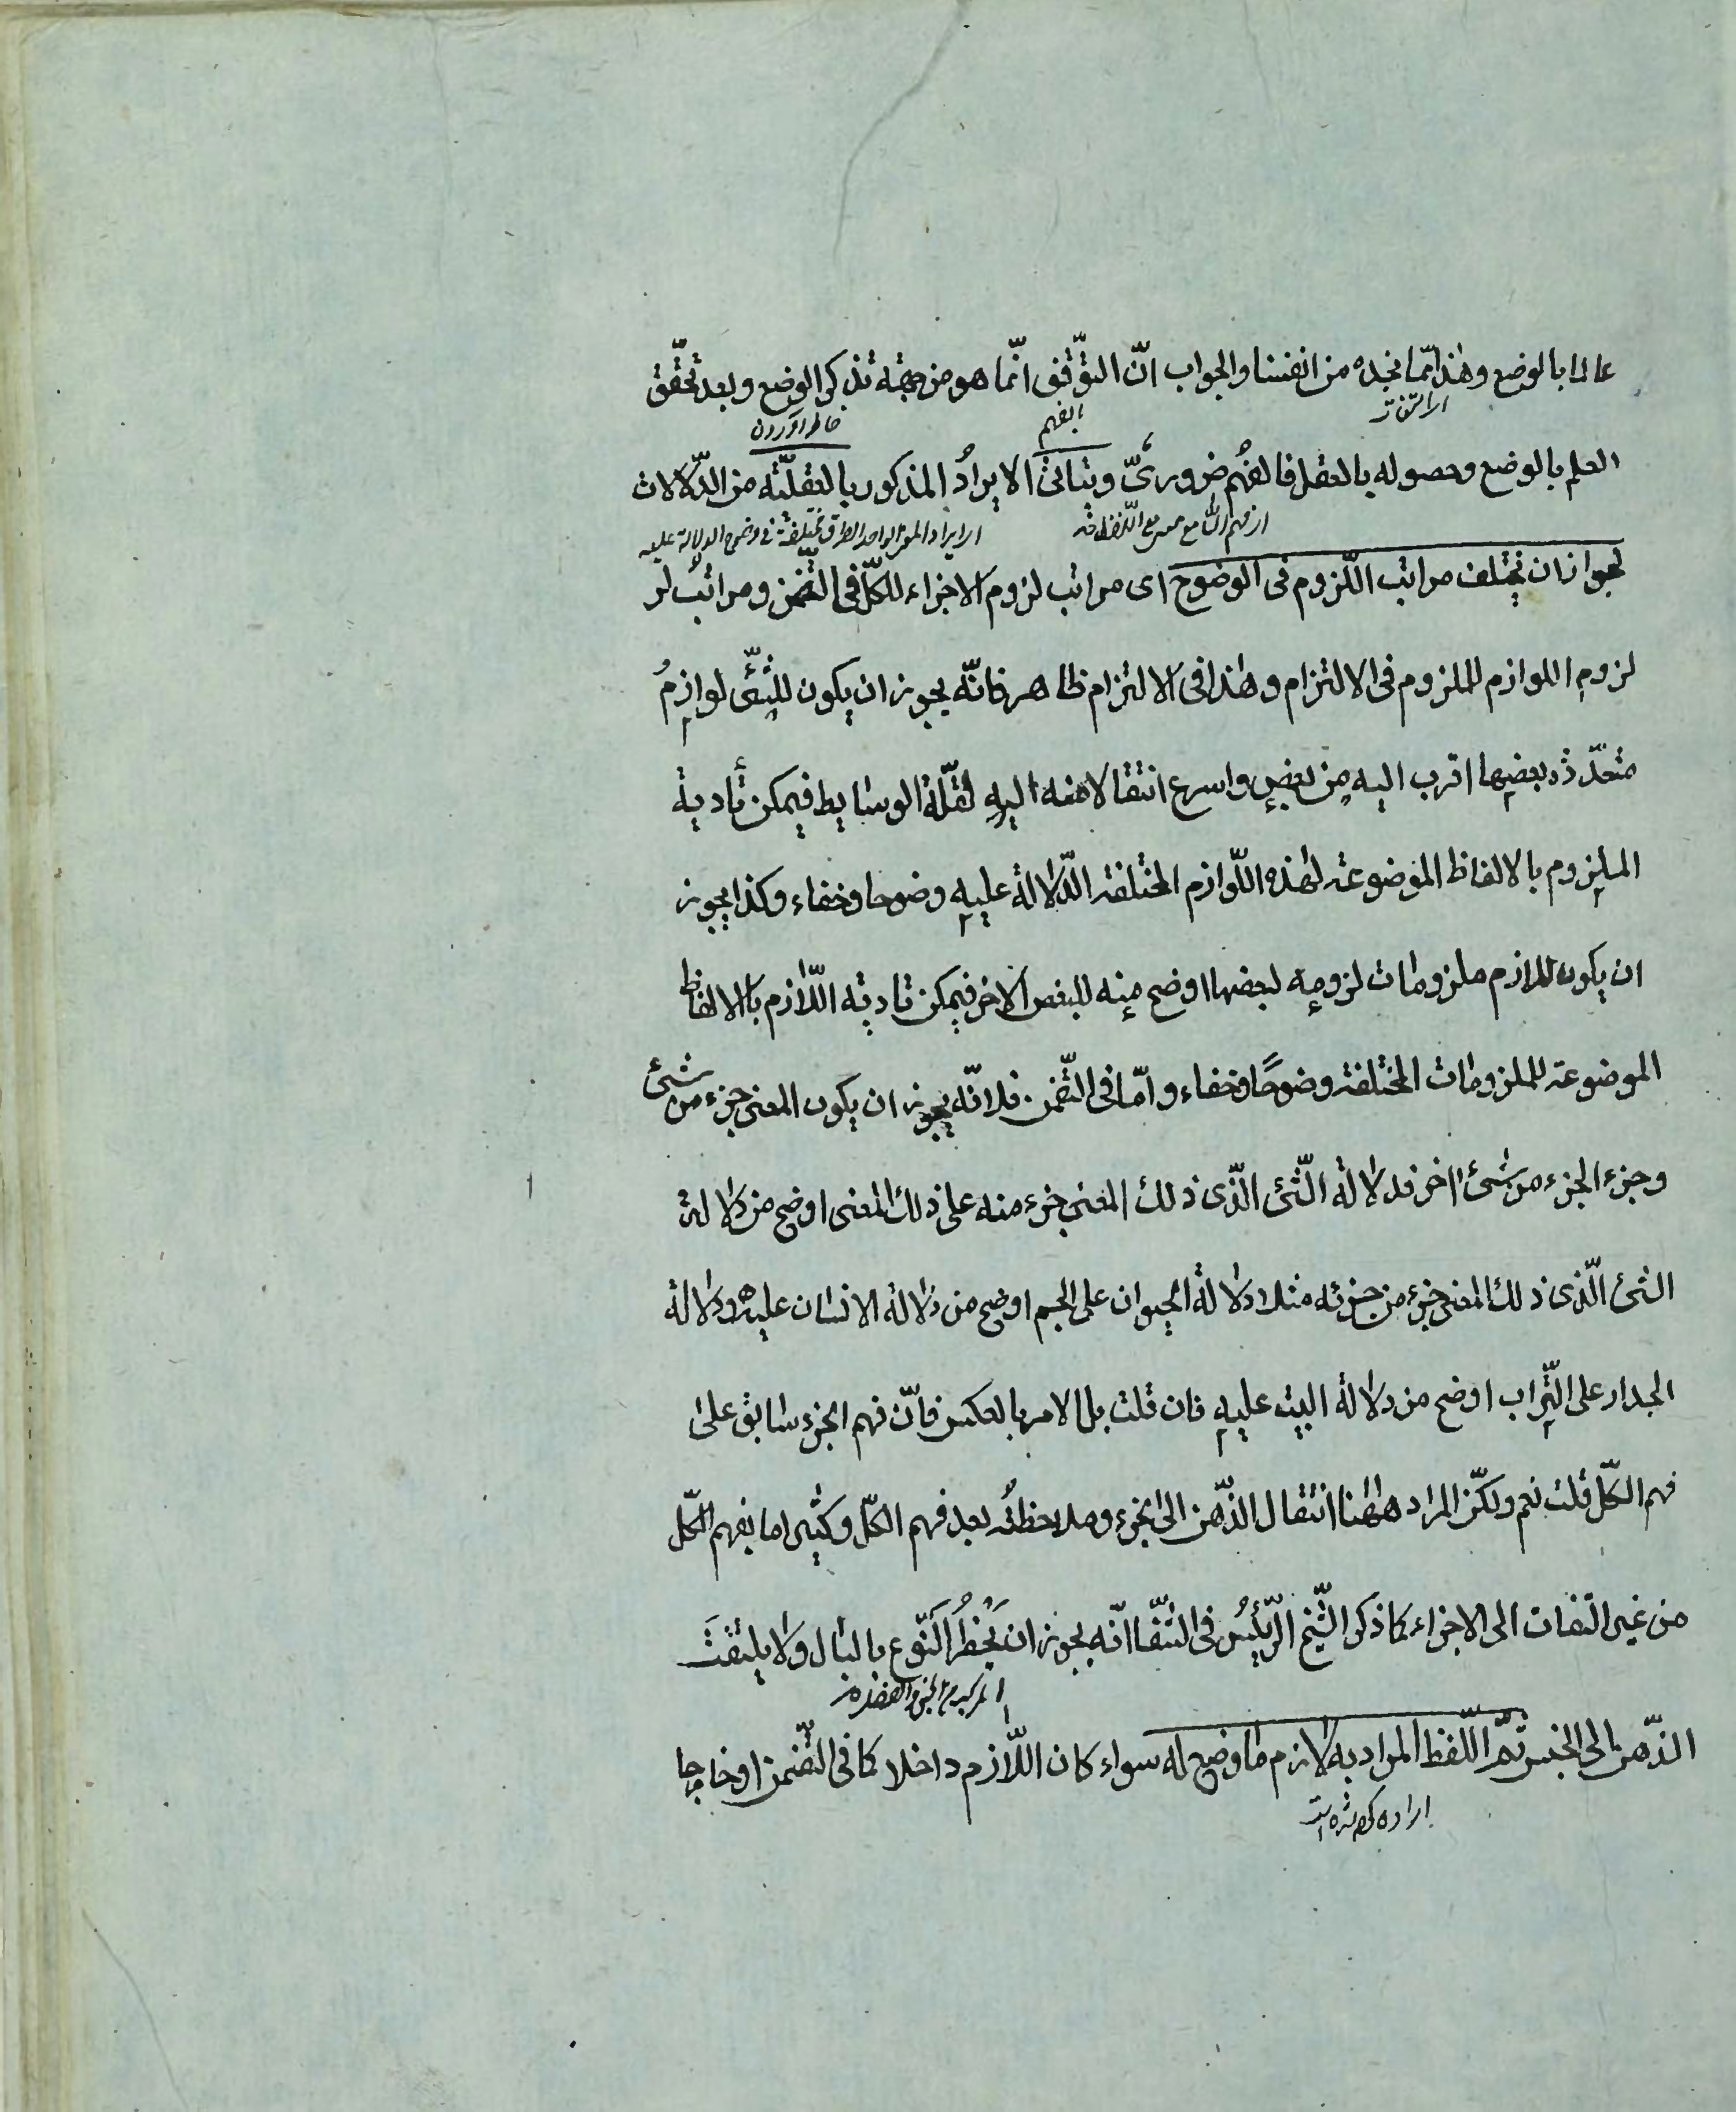 عالما بالوضع وهذا مما نجده من انفسنا والجواب انّ التوّقف انّما هو من جهة تذكر الوضع وبعد تحقّق
خاطر آوردن
العلم بالوضع وحصوله بالعقل فالفهم ضروریّ ويتاتى الايرادُ المذكور بالعقليّة من الدّلالات
اى ايراد المعنى الواحد بطرق مختلفة فى وضوح الدلالة عليه
لجواز ان تختلف مراتب اللّزوم فى الوضوح اى مراتب لزوم الاجزاء للكلّ فى التّضمن ومراتب لر
لزوم اللوازم للملزوم فى الالتزام وهذا فى الالتزام ظاهر فانّه يجوز ان يكون للشّئى لوازمُ
متعدّدة بعضها اقرب اليه من بعض واسرع انتقالا منه اليه لقلّة الوسايط فيمكن تأدية
الملزوم بالالفاظ الموضوعة لهذه اللّوازم المختلفة الدّلالة عليه وضوحا وخفاء وكذا يجوز
ان يكون للازم ملزومات لزومه لبعضها اوضح منه للبعض الاخر فيمكن تادية اللّازم بالالفاظ
الموضوعة للملزومات المختلفة وضوحًا وخفاء وامّا فى التّضمن فلانّه يجوز ان يكون المعنى جزء من شئ
وجزء الجزء من شئ اخر فدلالة الشّئ الّذى ذلك المعنى جزء منه على ذلك المعنى اوضح من دلالة
الشئ الّذى ذلك المعنى جزء من جزئه مثلا دلالة الحيوان على الجسم اوضح من دلالة الانسان عليه ودلالة
الجدار على التّراب اوضح من دلالة البيت عليه فان قلت بل الامر بالعكس فانّ فهم الجزء سابق على
فهم الكّل قلت نعم ولكنّ المراد هاهنا انتقال الذّهن الى الجزء وملاحظته بعد فهم الكلّ وكثيرا ما يفهم الكّل
من غير التفات الى الاجزاء كما ذكر الشّيخ الرّئيسُ فى الشّفا انّه يجوز ان يُخطَرُ النّوع بالبال ولا يلتفتَ
الذّهن الى الجنس ثمّ اللّفظ المراد به لازم ما وضع له سواء كان اللّازم داخلا كما فى التّضمن او خارجا